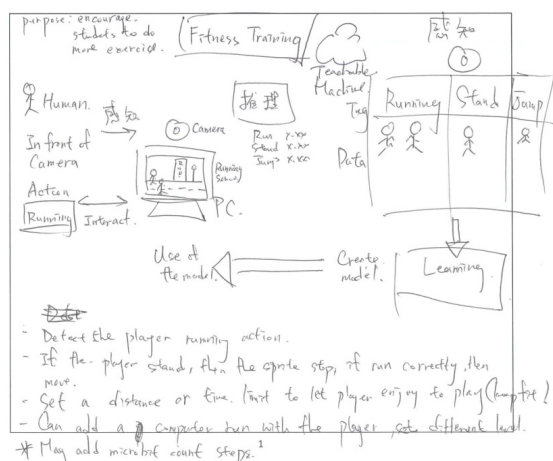 purpose: encourage
students to do
more exercise.
Fitness Training
感知
Teachable
Machine
Tag
Running
Stand
Jump
Data
Human
感知
In front of
Camera
Camera
推理
Run x.xx
Stand x.xx
Jump x.xx
Running
Action
Running
Interact.
PC.
Use of
the model.
Create
model.
Learning
- Detect the player running action.
- If the player stand, then the sprite stop, if run correctly then
move.
- Set a distance or time limit to let player enjoy to play
- Can add a computer run with the player, set different level.
* May add microbit count steps.
1